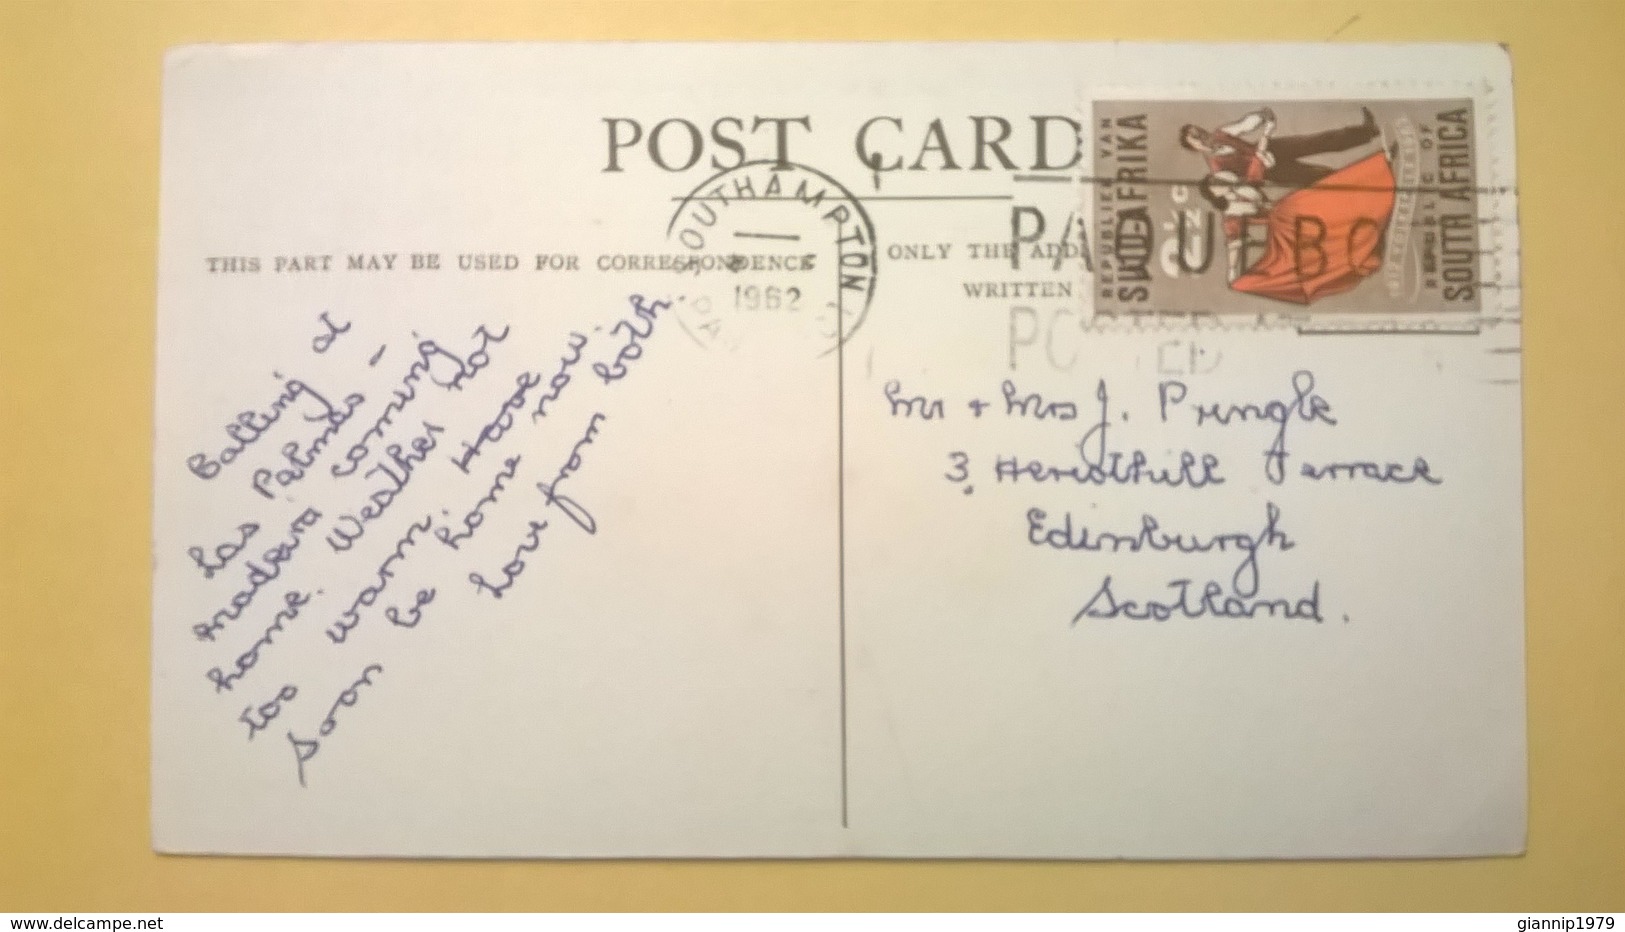 POST CARD
THIS PART MAY BE USED FOR CORRESPONDENCE
ONLY THE ADD
WRITTEN
SOUTHAMPTON
1962
PAQUEBO
REPUBLIEK VAN
SUID-AFRIKA
2½C
REPUBLIC OF
SOUTH AFRICA
Calling at
Las Palmas -
Madeira coming
home. Weather not
too warm. Have
soon be home now.
Love from both.
Mr + Mrs J. Pringle
3, Heriothill Terrace
Edinburgh
Scotland.
www.delcampe.net
giannip1979